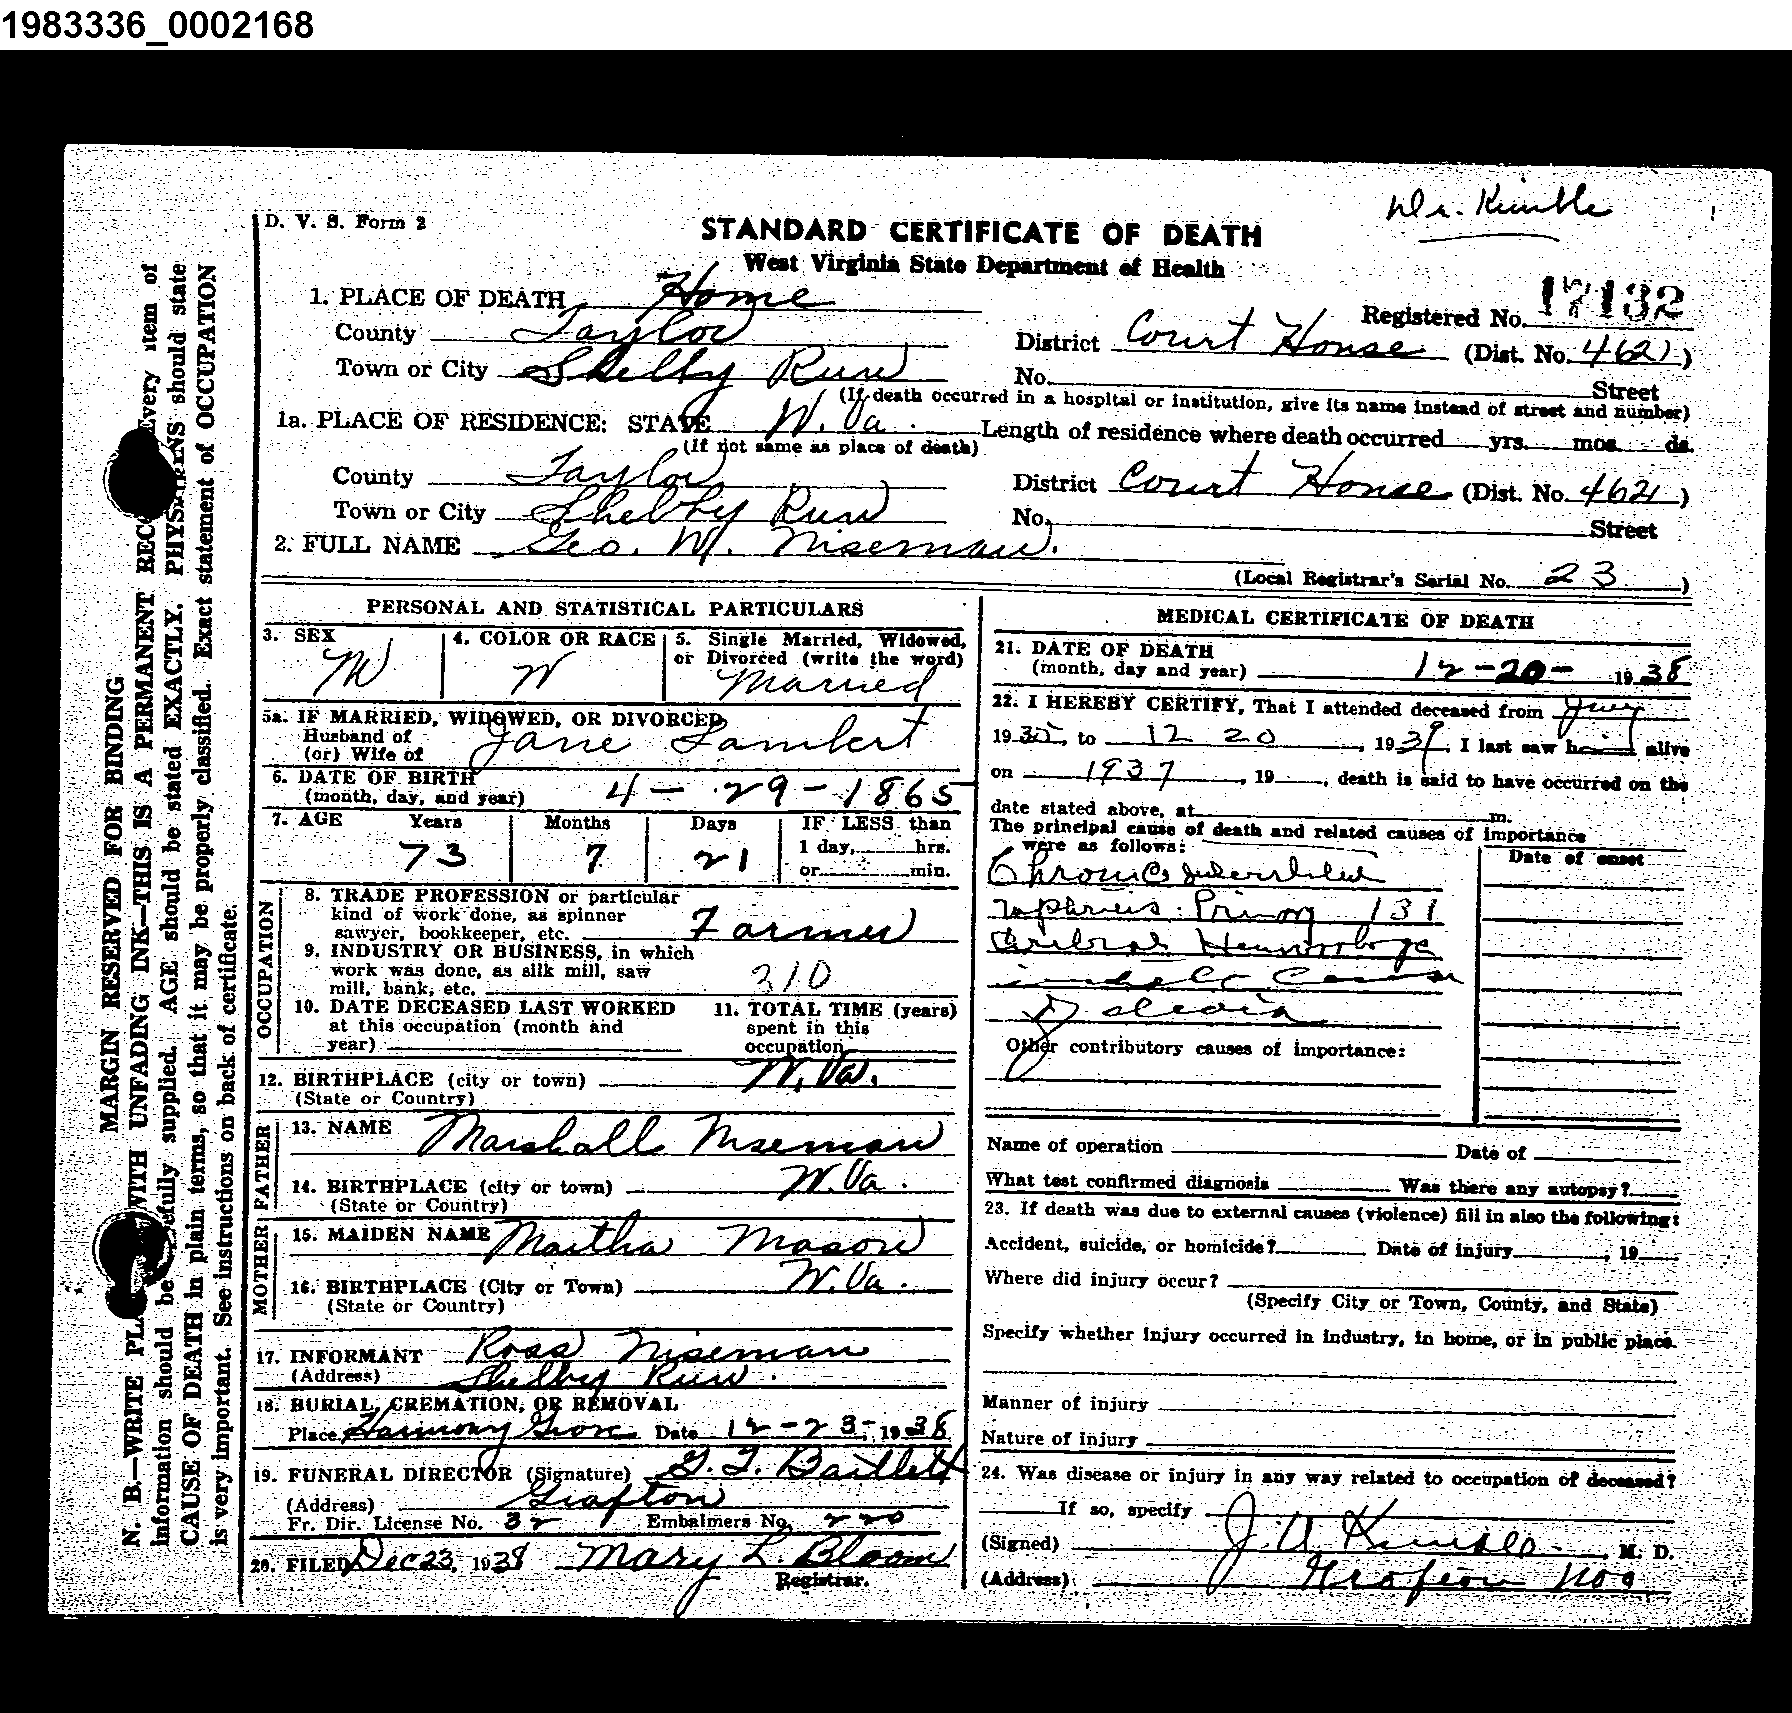 1983336_0002168
Dr. Kimble
D. V. S. Form 2
STANDARD CERTIFICATE OF DEATH
West Virginia State Department of Health
17132
1. PLACE OF DEATH Home
Registered No.
County Taylor
District Court House (Dist. No. 4621)
Town or City Shelby Run
No. Street
(If death occurred in a hospital or institution, give its name instead of street and number)
1a. PLACE OF RESIDENCE: STATE W. Va. Length of residence where death occurred yrs. mos. ds.
(If not same as place of death)
County Taylor
District Court House (Dist. No. 4621)
Town or City Shelby Run
No. Street
2. FULL NAME Geo. W. Niseman.
(Local Registrar's Serial No. 23)
PERSONAL AND STATISTICAL PARTICULARS
3. SEX M
4. COLOR OR RACE W
5. Single Married, Widowed,
or Divorced (write the word)
Married
5a. IF MARRIED, WIDOWED, OR DIVORCED
Husband of Jane Lambert
(or) Wife of
6. DATE OF BIRTH
(month, day, and year) 4-29-1865
7. AGE Years Months Days IF LESS than
73 7 21 1 day, hrs.
or min.
OCCUPATION
8. TRADE PROFESSION or particular
kind of work done, as spinner
sawyer, bookkeeper, etc. Farmer
9. INDUSTRY OR BUSINESS, in which
work was done, as silk mill, saw
mill, bank, etc. 310
10. DATE DECEASED LAST WORKED
at this occupation (month and
year)
11. TOTAL TIME (years)
spent in this
occupation
12. BIRTHPLACE (city or town) W. Va.
(State or Country)
FATHER
13. NAME Marshall Niseman
14. BIRTHPLACE (city or town) W. Va.
(State or Country)
MOTHER
15. MAIDEN NAME Martha Mason
16. BIRTHPLACE (City or Town) W. Va.
(State or Country)
17. INFORMANT Ross Niseman
(Address) Shelby Run.
18. BURIAL, CREMATION, OR REMOVAL
Place Harmony Grove Date 12-23-, 1938
19. FUNERAL DIRECTOR (Signature) G. T. Bartlett
(Address) Grafton
Fr. Dir. License No. 32 Embalmers No. 220
20. FILED Dec 23, 1938 Mary L. Bloom
Registrar.
MEDICAL CERTIFICATE OF DEATH
21. DATE OF DEATH
(month, day and year) 12-20- 1938
22. I HEREBY CERTIFY, That I attended deceased from
19 to 12 20, 19, I last saw h alive
on 1937, 19, death is said to have occurred on the
date stated above, at m.
The principal cause of death and related causes of importance
were as follows:
Date of onset
Chronic Interstitial
nephritis. 131
Cerebral Hemorrhage
Other contributory causes of importance:
Name of operation Date of
What test confirmed diagnosis Was there any autopsy?
23. If death was due to external causes (violence) fill in also the following:
Accident, suicide, or homicide? Date of injury, 19
Where did injury occur?
(Specify City or Town, County, and State)
Specify whether injury occurred in industry, in home, or in public place.
Manner of injury
Nature of injury
24. Was disease or injury in any way related to occupation of deceased?
If so, specify
(Signed) J. A. Kimble M. D.
(Address) Grafton
MARGIN RESERVED FOR BINDING
N. B.—WRITE WITH UNFADING INK—THIS IS A PERMANENT Every item of
information should be carefully supplied. AGE should be stated EXACTLY. PHYSICIANS should state
CAUSE OF DEATH in plain terms, so that it may be properly classified. Exact statement of OCCUPATION
is very important. See instructions on back of certificate.